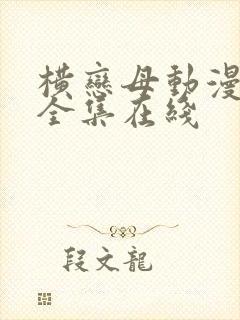 橫戀母動漫
全集在綫
段文龍